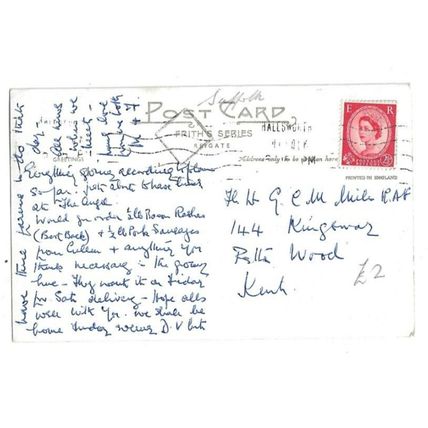 Suffolk
POST CARD
FRITH'S SERIES
REIGATE
HALESWORTH
PM
E R
GREETINGS
Address only to be written here
PRINTED IN ENGLAND
Everything going according to plan
so far - just about to have lunch
at The Angel.
Would you order ½ lb Bacon Rashers
(Best Back) + ½ lb Pork Sausages
from Cullen + anything you
think necessary - the grocery
line - They want it on Friday
for Sat. delivery - Hope all's
well with you. We shall be
home Sunday D.V. but
have
day -
All news
when we
meet -
love
144 Kingsway
Petts Wood
Kent.
£2